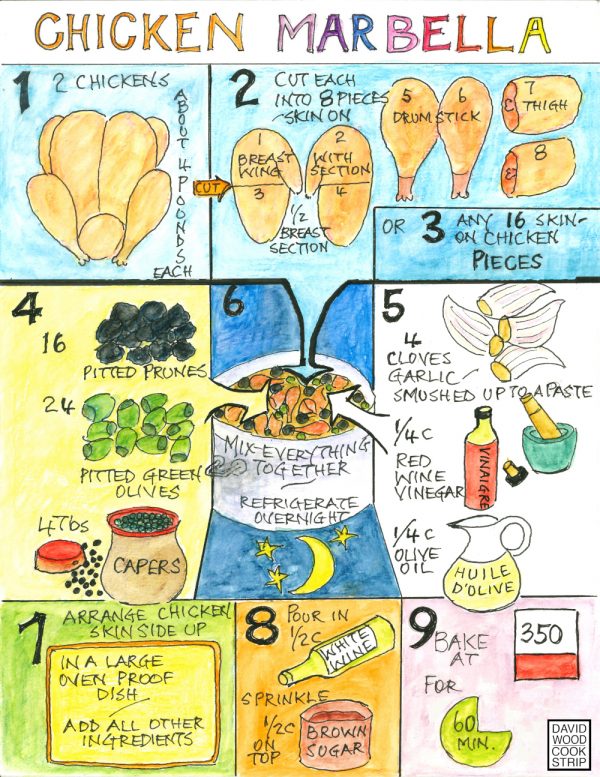 CHICKEN MARBELLA
1
2 CHICKENS
ABOUT 4 POUNDS EACH
2
CUT EACH
INTO 8 PIECES
SKIN ON
CUT
1
BREAST
WING
2
WITH
SECTION
3
4
1/2
BREAST
SECTION
5
6
DRUMSTICK
7
THIGH
8
OR 3 ANY 16 SKIN-
ON CHICKEN
PIECES
4
16
PITTED PRUNES
24
PITTED GREEN
OLIVES
4 Tbs
CAPERS
5
4
CLOVES
GARLIC
SMUSHED UP TO A PASTE
1/4 C
RED
WINE
VINEGAR
VINAIGRE
1/4 C
OLIVE
OIL
HUILE
D'OLIVE
6
MIX EVERYTHING
TOGETHER
REFRIGERATE
OVERNIGHT
7
ARRANGE CHICKEN
SKIN SIDE UP
IN A LARGE
OVEN PROOF
DISH
ADD ALL OTHER
INGREDIENTS
8
POUR IN
1/2 C
WHITE
WINE
SPRINKLE
1/2 C
ON
TOP
BROWN
SUGAR
9
BAKE
AT
350
FOR
60
MIN.
DAVID
WOOD
COOK
STRIP